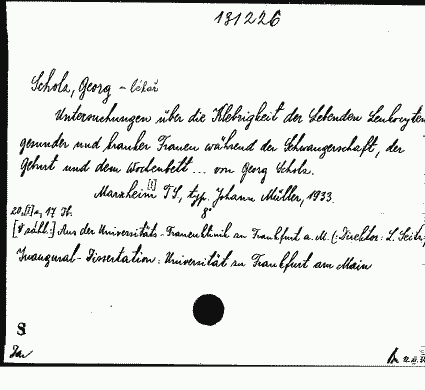 131226
Scholz, Georg - lékař
Untersuchungen über die Klebrigkeit der Lebenden Leukocyten
gesunder und kranker Frauen während der Schwangerschaft, der
Geburt und dem Wochenbett ... von Georg Scholz.
Marxheim [!] TS, typ. Johann Müller, 1933.
8°
20, [I] a, 17 Tb.
[V záhl.:] Aus der Universitäts-Frauenklinik zu Frankfurt a. M. (: Direktor: L. Seitz,
Inaugural-Dissertation: Universität zu Frankfurt am Main
8